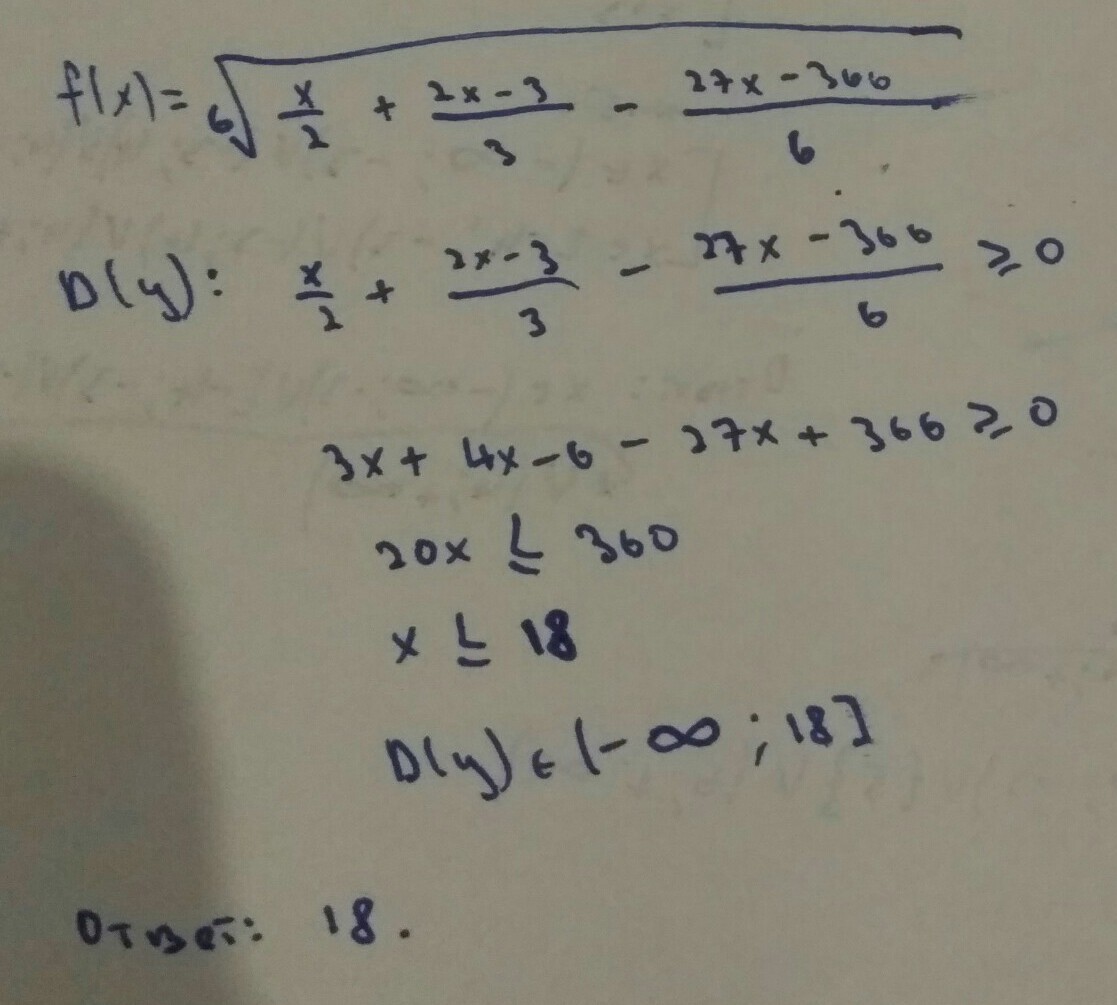 f(x)= ⁶√(x/2 + (2x-3)/3 - (27x-366)/6)
D(y): x/2 + (2x-3)/3 - (27x-366)/6 ≥ 0
3x + 4x - 6 - 27x + 366 ≥ 0
20x ≤ 360
x ≤ 18
D(y) ∈ (-∞ ; 18]
Ответ: 18.